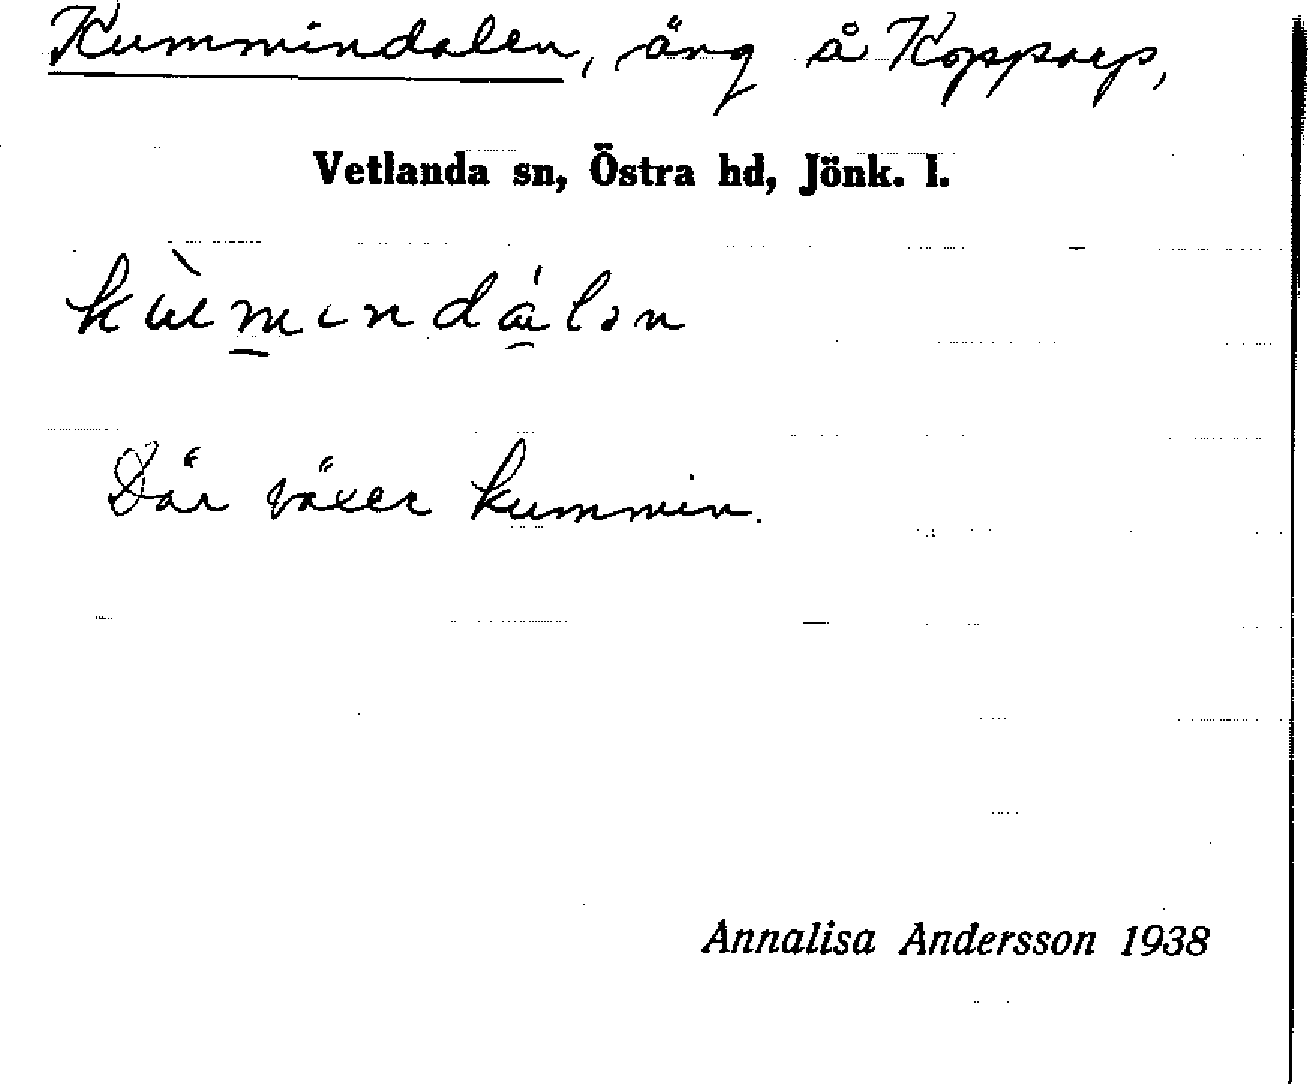 Kummindalen, äng å Kopparp,
Vetlanda sn, Östra hd, Jönk. l.
Där växer kummin.
Annalisa Andersson 1938